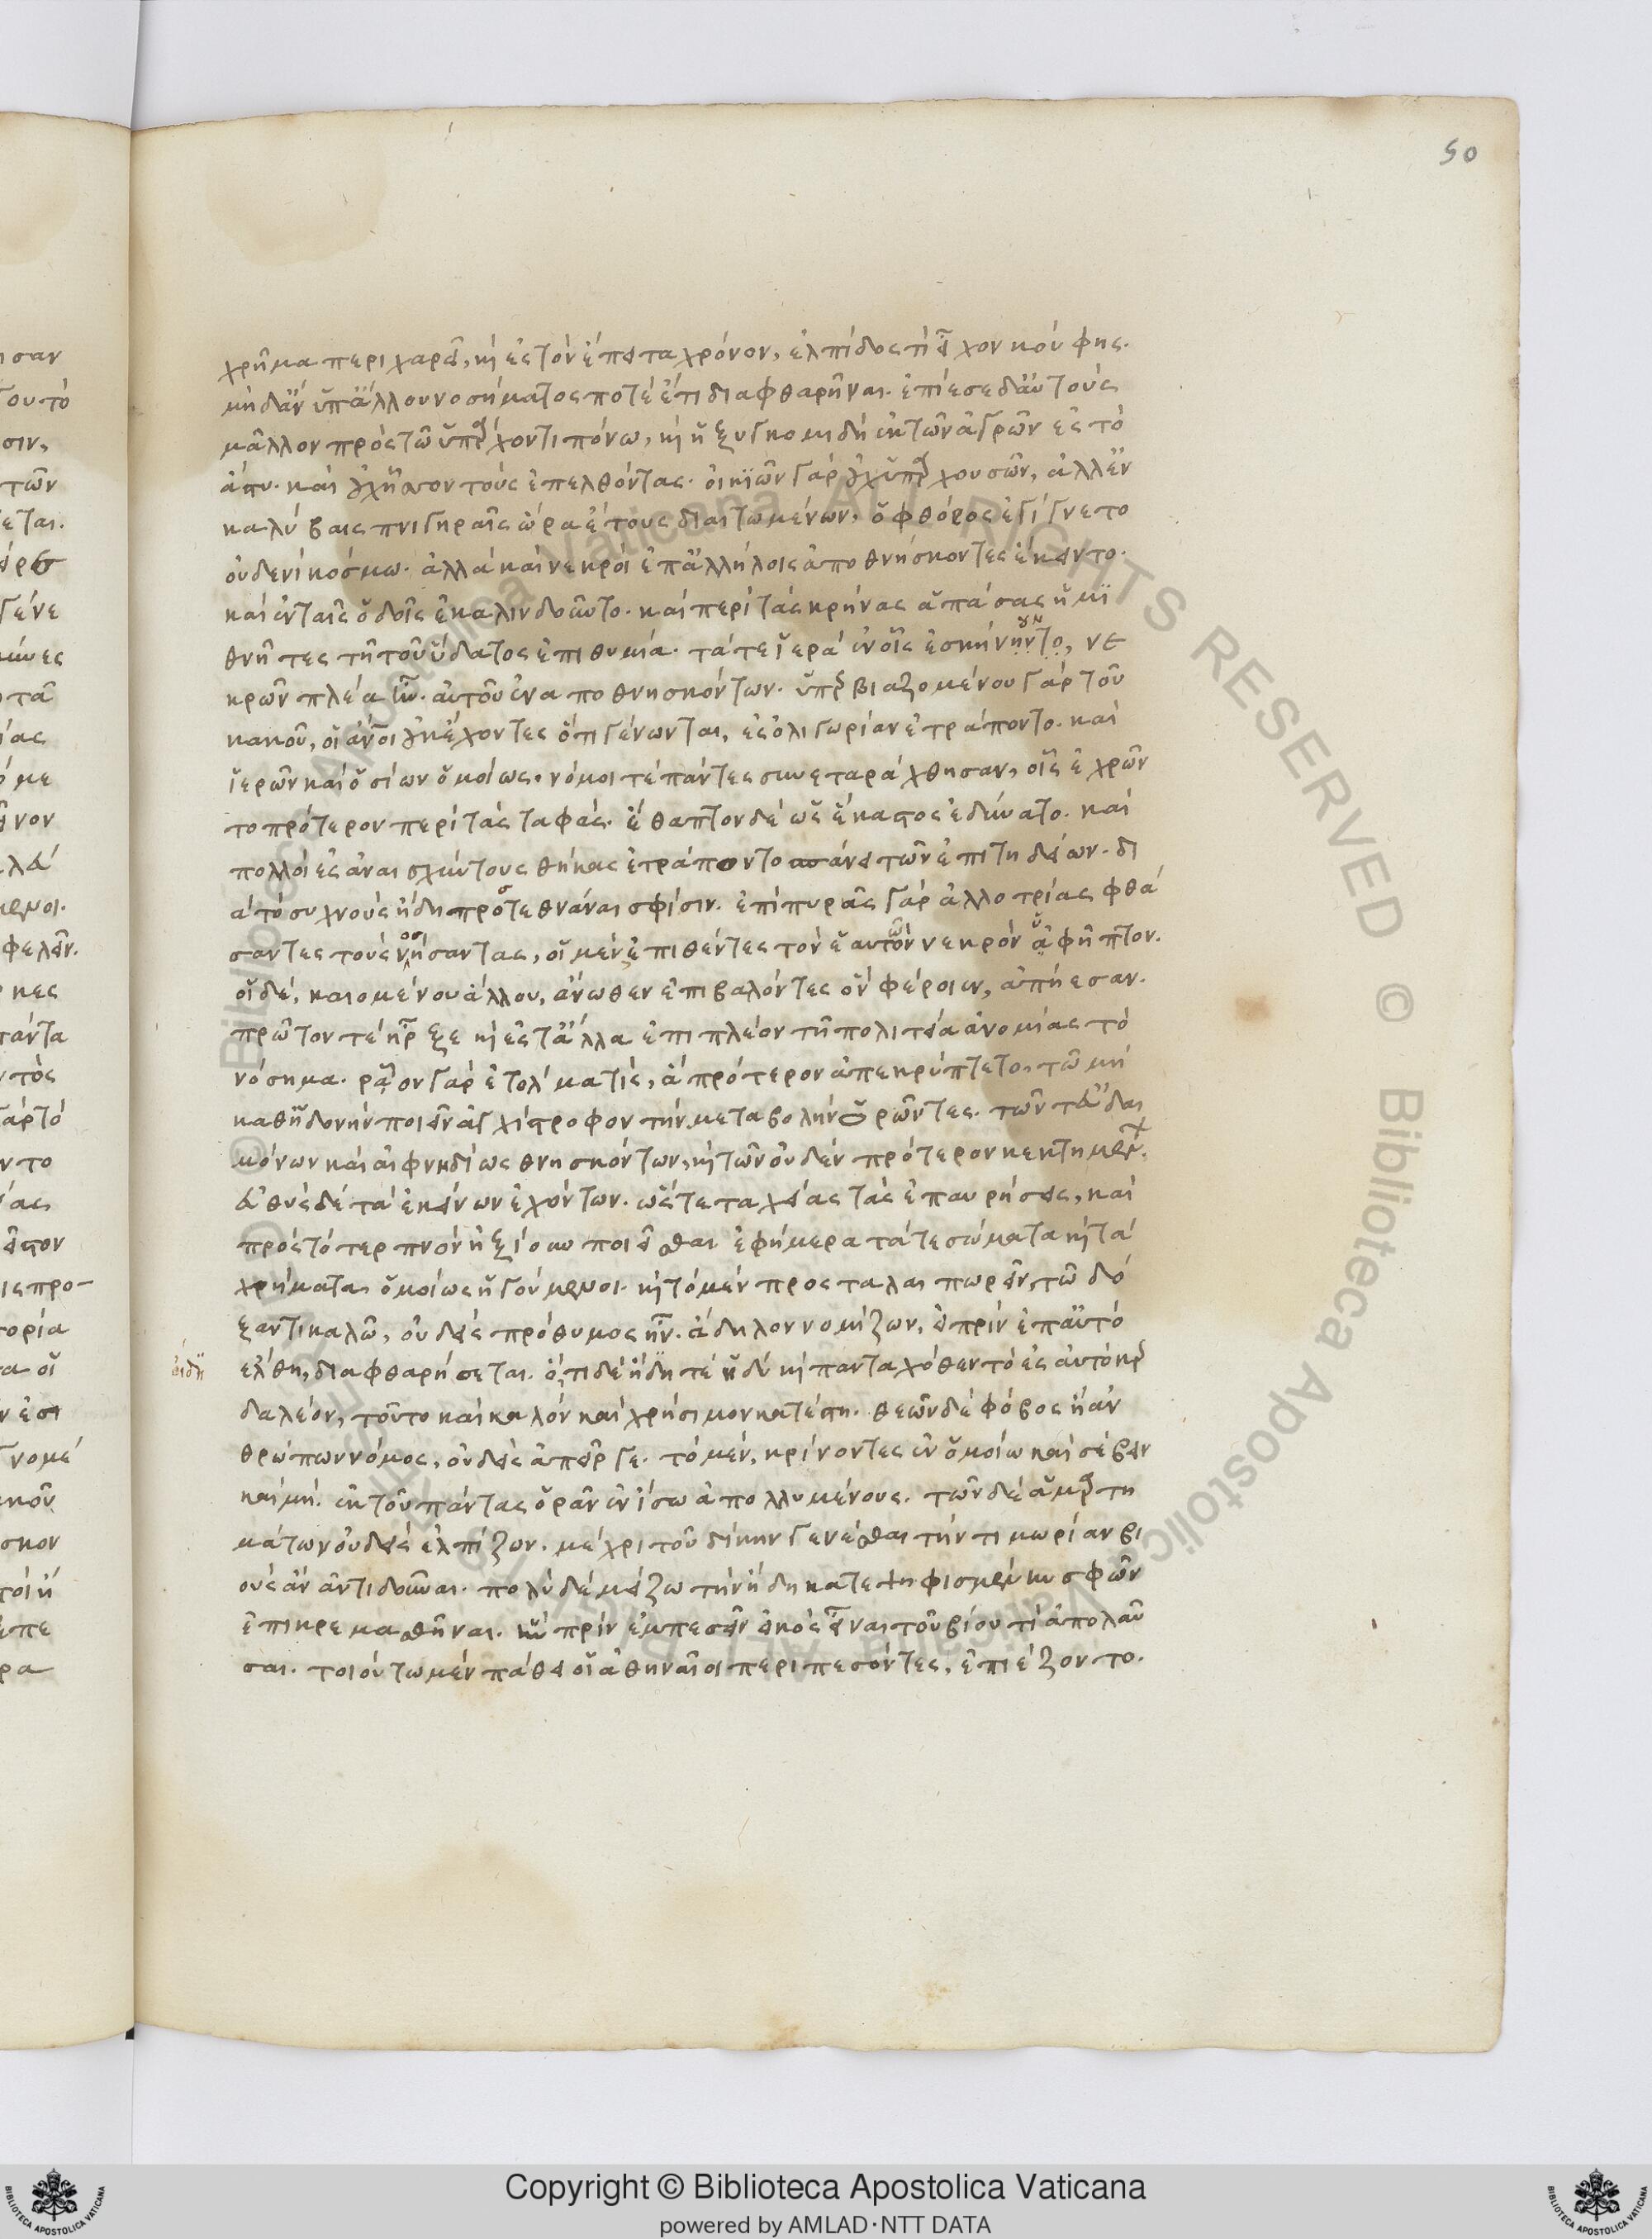 50
χρῆμα περιχαρεῖ, καὶ ἐς τὸν ἔπειτα χρόνον, ἐλπίδος τὶ εἶχον κούφης.
μὴδἂν ὑπἄλλου νοσήματος ποτὲ ἔτι διαφθαρῆναι. ἐπίεσε δἀυτοὺς
μᾶλλον πρὸς τῶ ὑπάρχοντι πόνω, καὶ ἡ ξυγκομιδὴ ἐκ τῶν ἀγρῶν ἐς τὸ
ἄστυ. καὶ οὐχ ἧσσον τοὺς ἐπελθόντας. οἰκιῶν γὰρ οὐχ ὑπαρχουσῶν, ἀλλἐν
καλύβαις πνιγηραῖς ὥρα ἔτους διαιτωμένων, ὁ φθόρος ἐγίγνετο
οὐδενὶ κόσμω. ἀλλὰ καὶ νεκροὶ ἐπἀλλήλοις ἀποθνήσκοντες ἔκειντο.
καὶ ἐν ταῖς ὁδοῖς ἐκαλινδοῦντο. καὶ περὶ τὰς κρήνας ἁπάσας ἡμι
θνῆτες τῆ τοῦ ὕδατος ἐπιθυμία. τά τε ἱερὰ ἐν οἷς ἐσκήνηντο, νε
κρῶν πλέα ἦν. αὐτοῦ ἐναποθνησκόντων. ὑπερβιαζομένου γὰρ τοῦ
κακοῦ, οἱ ἄνοι οὐκ ἔχοντες ὅτι γένωνται, ἐς ὀλιγωρίαν ἐτράποντο. καὶ
ἱερῶν καὶ ὁσίων ὁμοίως. νόμοι τὲ πάντες συνεταράχθησαν, οἷς ἐχρῶν
το πρότερον περὶ τὰς ταφάς. ἔθαπτον δὲ ὡς ἕκαστος ἐδύνατο. καὶ
πολλοὶ ἐς ἀναισχύντους θήκας ἐτράποντο σπάνει τῶν ἐπιτηδείων. δι
ὰ τὸ συχνοὺς ἤδη προτεθνάναι σφίσιν. ἐπὶ πυρὰς γὰρ ἀλλοτρίας φθά
σαντες τοὺς νήσαντας, οἱ μὲν ἐπιθέντες τὸν ἑαυτῶν νεκρὸν ὑφῆπτον.
οἱ δέ, καιομένου ἄλλου, ἄνωθεν ἐπιβαλόντες ὃν φέροιεν, ἀπήεσαν.
πρῶτον τὲ ἦρξε καὶ ἐς τἆλλα ἐπιπλέον τῆ πολιτεία ἀνομίας τὸ
νόσημα. ρᾷον γὰρ ἐτόλμα τίς, ἃ πρότερον ἀπεκρύπτετο, τῶ μὴ
καθἡδονὴν ποιεῖν ἀγχίστροφον τὴν μεταβολὴν ὁρῶντες. τῶν τεὐδαι
μόνων καὶ αἰφνηδίως θνησκόντων, καὶ τῶν οὐδὲν πρότερον κεκτημένων.
εὐθὺς δὲ τὰ ἐκείνων ἐχόντων. ὥστε ταχείας τὰς ἐπαυρήσεις, καὶ
πρὸς τὸ τερπνὸν ἠξίουν ποιεῖσθαι ἐφήμερα τά τε σώματα καὶ τὰ
χρήματα, ὁμοίως ἡγούμενοι. καὶ τὸ μὲν προσταλαιπωρεῖν τῶ δό
ξαντι καλῶ, οὐδεὶς πρόθυμος ἦν. ἄδηλον νομίζων, εἰ πρὶν ἐπἀυτὸ
ἐλθη, διαφθαρήσεται. ὅ,τι δὲ ἤδη τὲ ἡδὺ καὶ πανταχόθεν τὸ ἐς αὐτὸ κερ
δαλέον, τοῦτο καὶ καλὸν καὶ χρήσιμον κατέστη. θεῶν δὲ φόβος ἢ ἀν
θρώπων νόμος, οὐδεὶς ἀπεῖργε. τὸ μέν, κρίνοντες ἐν ὁμοίω καὶ σέβειν
καὶ μή. ἐκ τοῦ πάντας ὁρᾶν ἐν ἴσω ἀπολλυμένους. τῶν δὲ ἁμαρτη
μάτων οὐδεὶς ἐλπίζων. μέχρι τοῦ δίκην γενέσθαι τὴν τιμωρίαν βι
οὺς ἂν ἀντιδοῦναι. πολὺ δὲ μείζω τὴν ἤδη κατεψηφισμένην σφῶν
ἐπικρεμασθῆναι. ἣν πρὶν ἐμπεσεῖν εἰκὸς εἶναι τοῦ βίου τὶ ἀπολαῦ
σαι. τοιούτω μὲν πάθει οἱ ἀθηναῖοι περιπεσόντες, ἐπιέζοντο.
Copyright © Biblioteca Apostolica Vaticana
powered by AMLAD·NTT DATA